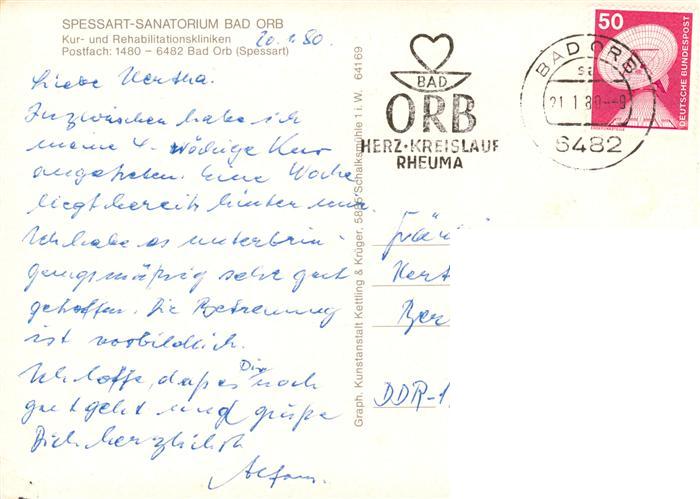 SPESSART-SANATORIUM BAD ORB
Kur- und Rehabilitationskliniken
Postfach: 1480 – 6482 Bad Orb (Spessart)
20.1.80.
Liebe Hertha.
Inzwischen habe ich
meine 4-wöchige Kur
angetreten. Eine Woche
liegt bereits hinter mir.
Ich habe es unterbrin-
gungsmäßig sehr gut
getroffen. Die Betreuung
ist vorbildlich.
Ich hoffe, daß es Dir noch
gut geht und grüße
Dich herzlichst
64169
Graph. Kunstanstalt Kettling & Krüger, 5885 Schalksmühle 1 i. W.
BAD
ORB
HERZ·KREISLAUF
RHEUMA
BAD ORB
21.1.80
6482
50
DEUTSCHE BUNDESPOST
Hert
Ber
DDR-1